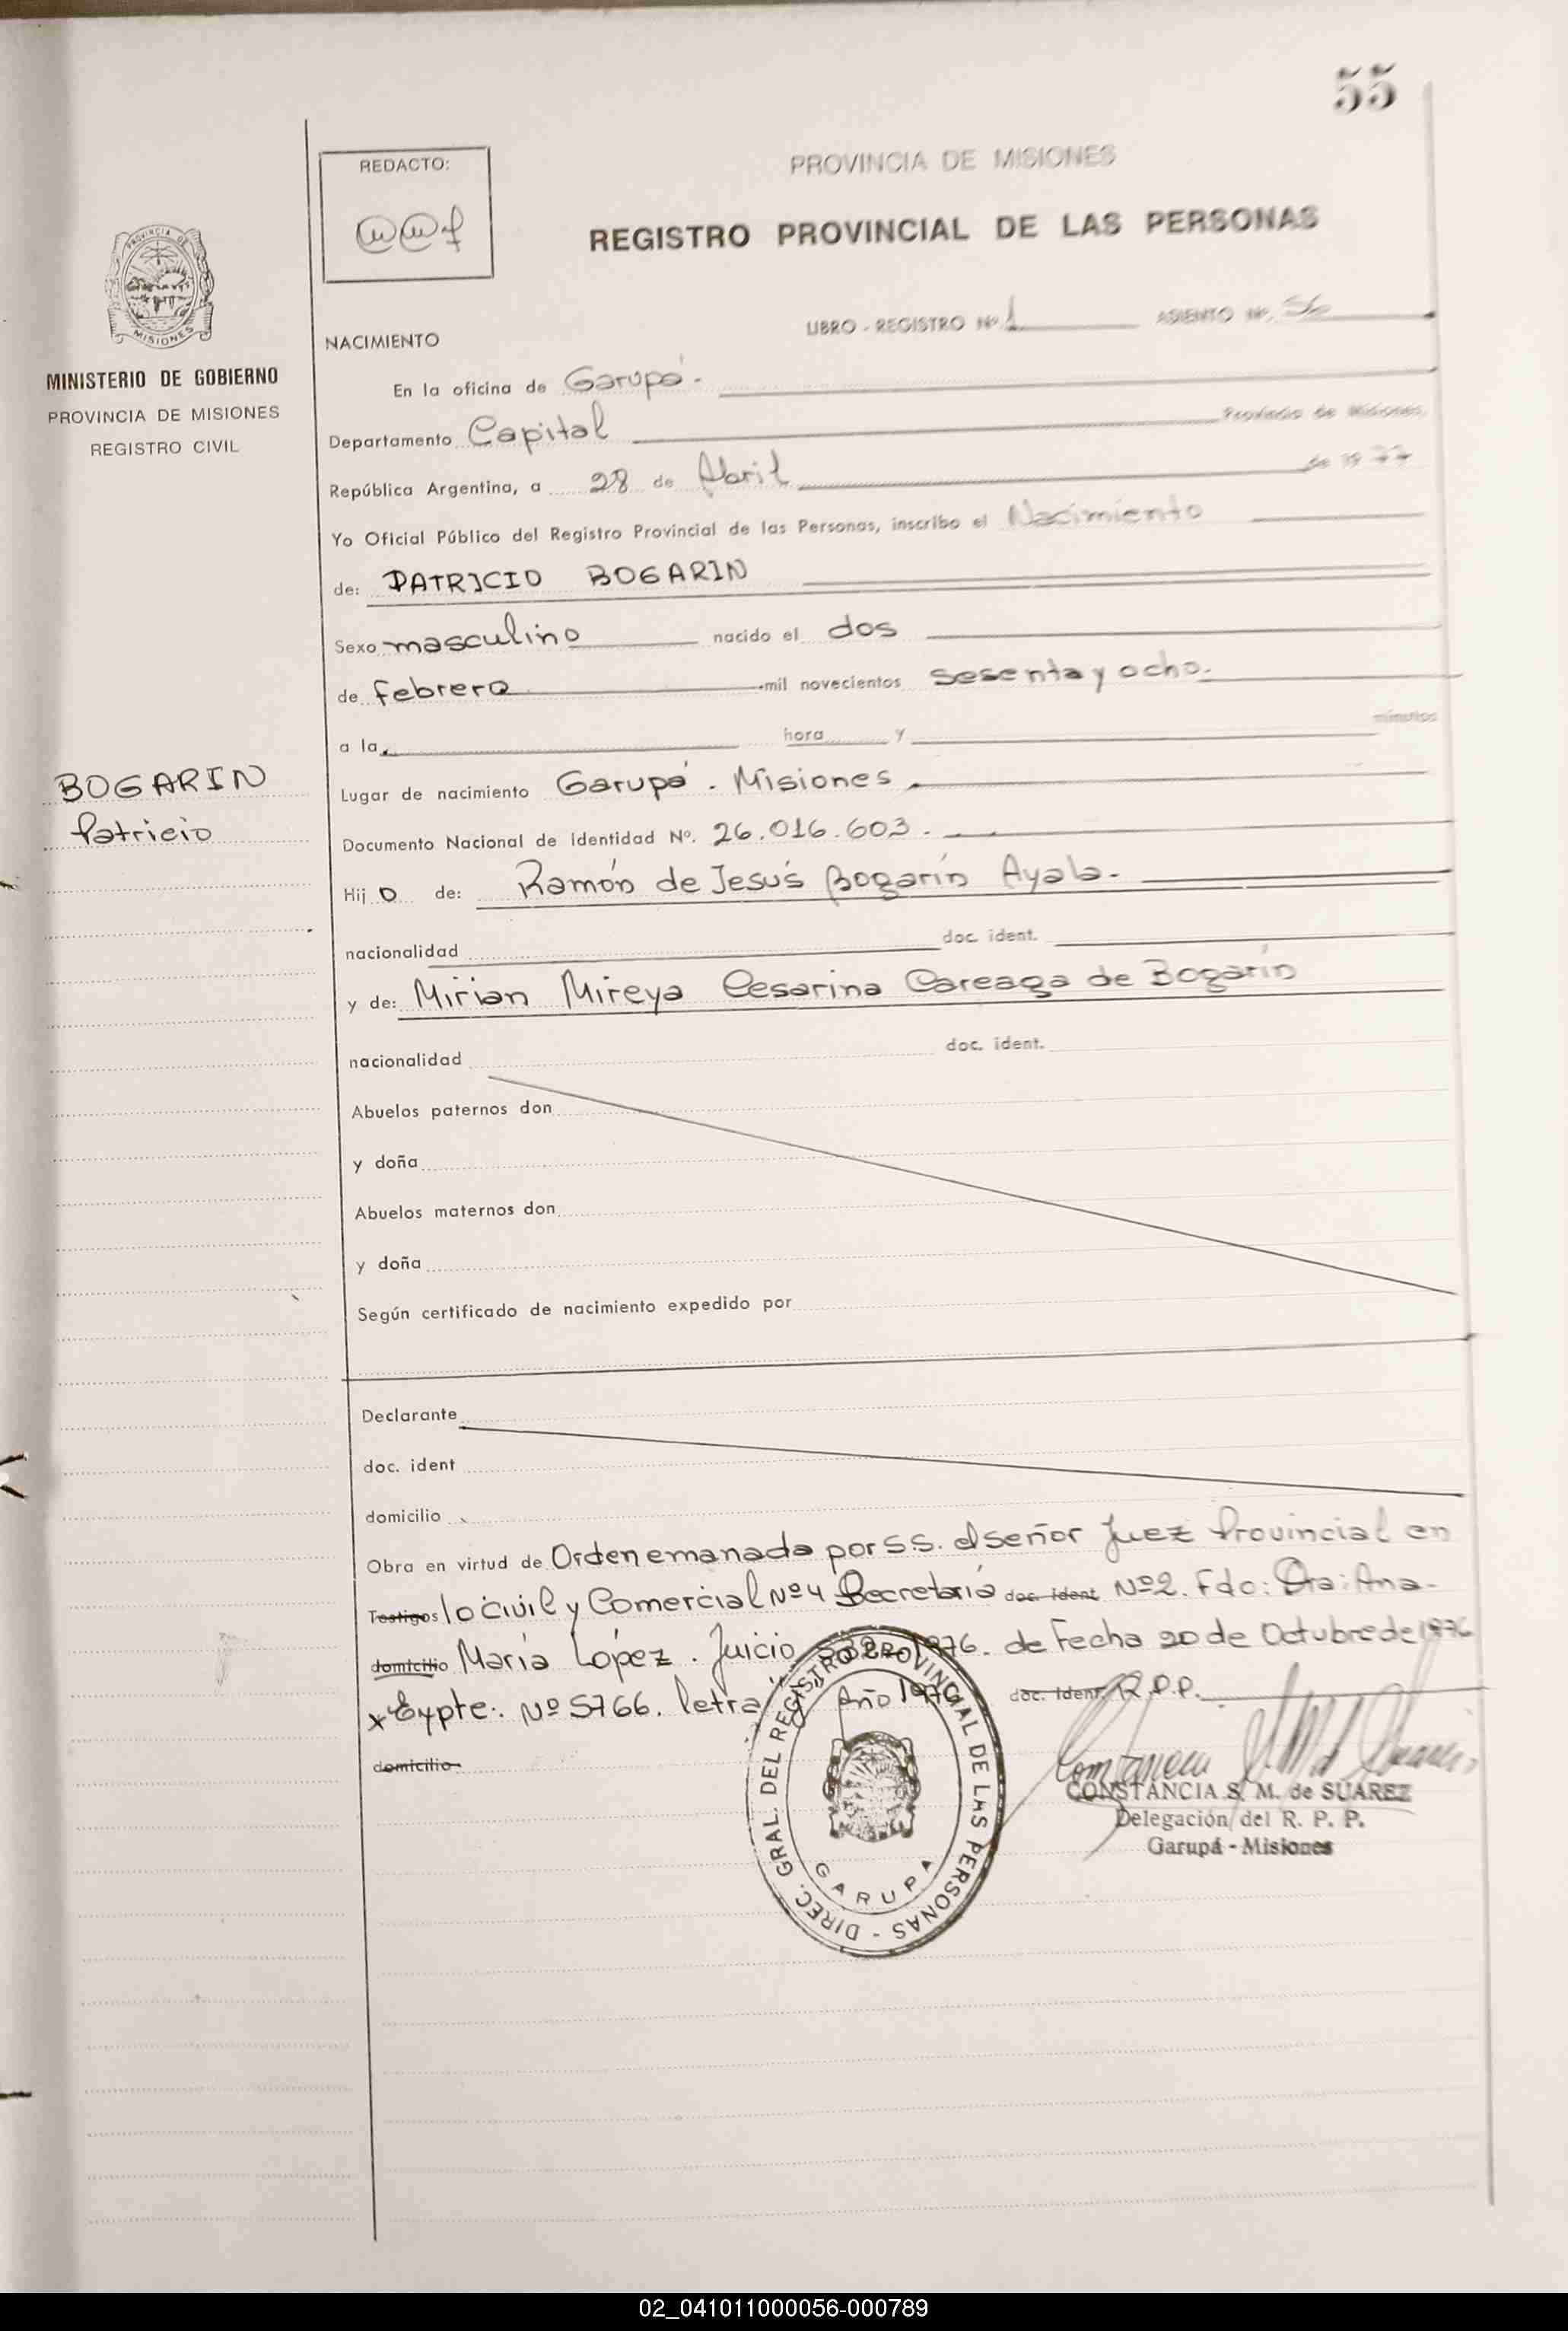 55
REDACTO:
PROVINCIA DE MISIONES
REGISTRO PROVINCIAL DE LAS PERSONAS
PROVINCIA DE
MISIONES
MINISTERIO DE GOBIERNO
PROVINCIA DE MISIONES
REGISTRO CIVIL
LIBRO - REGISTRO Nº 1 ASIENTO Nº. 56
NACIMIENTO
En la oficina de Garupá.-
Departamento Capital Provincia de Misiones,
República Argentina, a 28 de Abril de 19 77
Yo Oficial Público del Registro Provincial de las Personas, inscribo el Nacimiento
de: PATRICIO BOGARIN
Sexo masculino nacido el dos
de febrero mil novecientos sesenta y ocho.
a la hora y minutos
BOGARIN
Patricio
Lugar de nacimiento Garupá. Misiones
Documento Nacional de identidad Nº. 26.016.603.-
Hij o de: Ramón de Jesús Bogarín Ayala.-
nacionalidad doc. ident.
y de: Mirian Mireya Cesarina Careaga de Bogarín
nacionalidad doc. ident.
Abuelos paternos don
y doña
Abuelos maternos don
y doña
Según certificado de nacimiento expedido por
Declarante
doc. ident
domicilio
Obra en virtud de Orden emanada por S.S. el señor Juez Provincial en
Testigos lo Civil y Comercial Nº 4 Secretaría doc. ident Nº 2. Fdo: Dra: Ana-
domicilio María López. Juicio 1976. de Fecha 20 de Octubre de 1976
x Eypte: Nº 5766. letra Año 1976 doc. ident. R.P.P.
domicilio
DIREC. GRAL. DEL REGISTRO PROVINCIAL DE LAS PERSONAS -
GARUPA
CONSTANCIA S. M. de SUAREZ
Delegación del R. P. P.
Garupá - Misiones
02_041011000056-000789